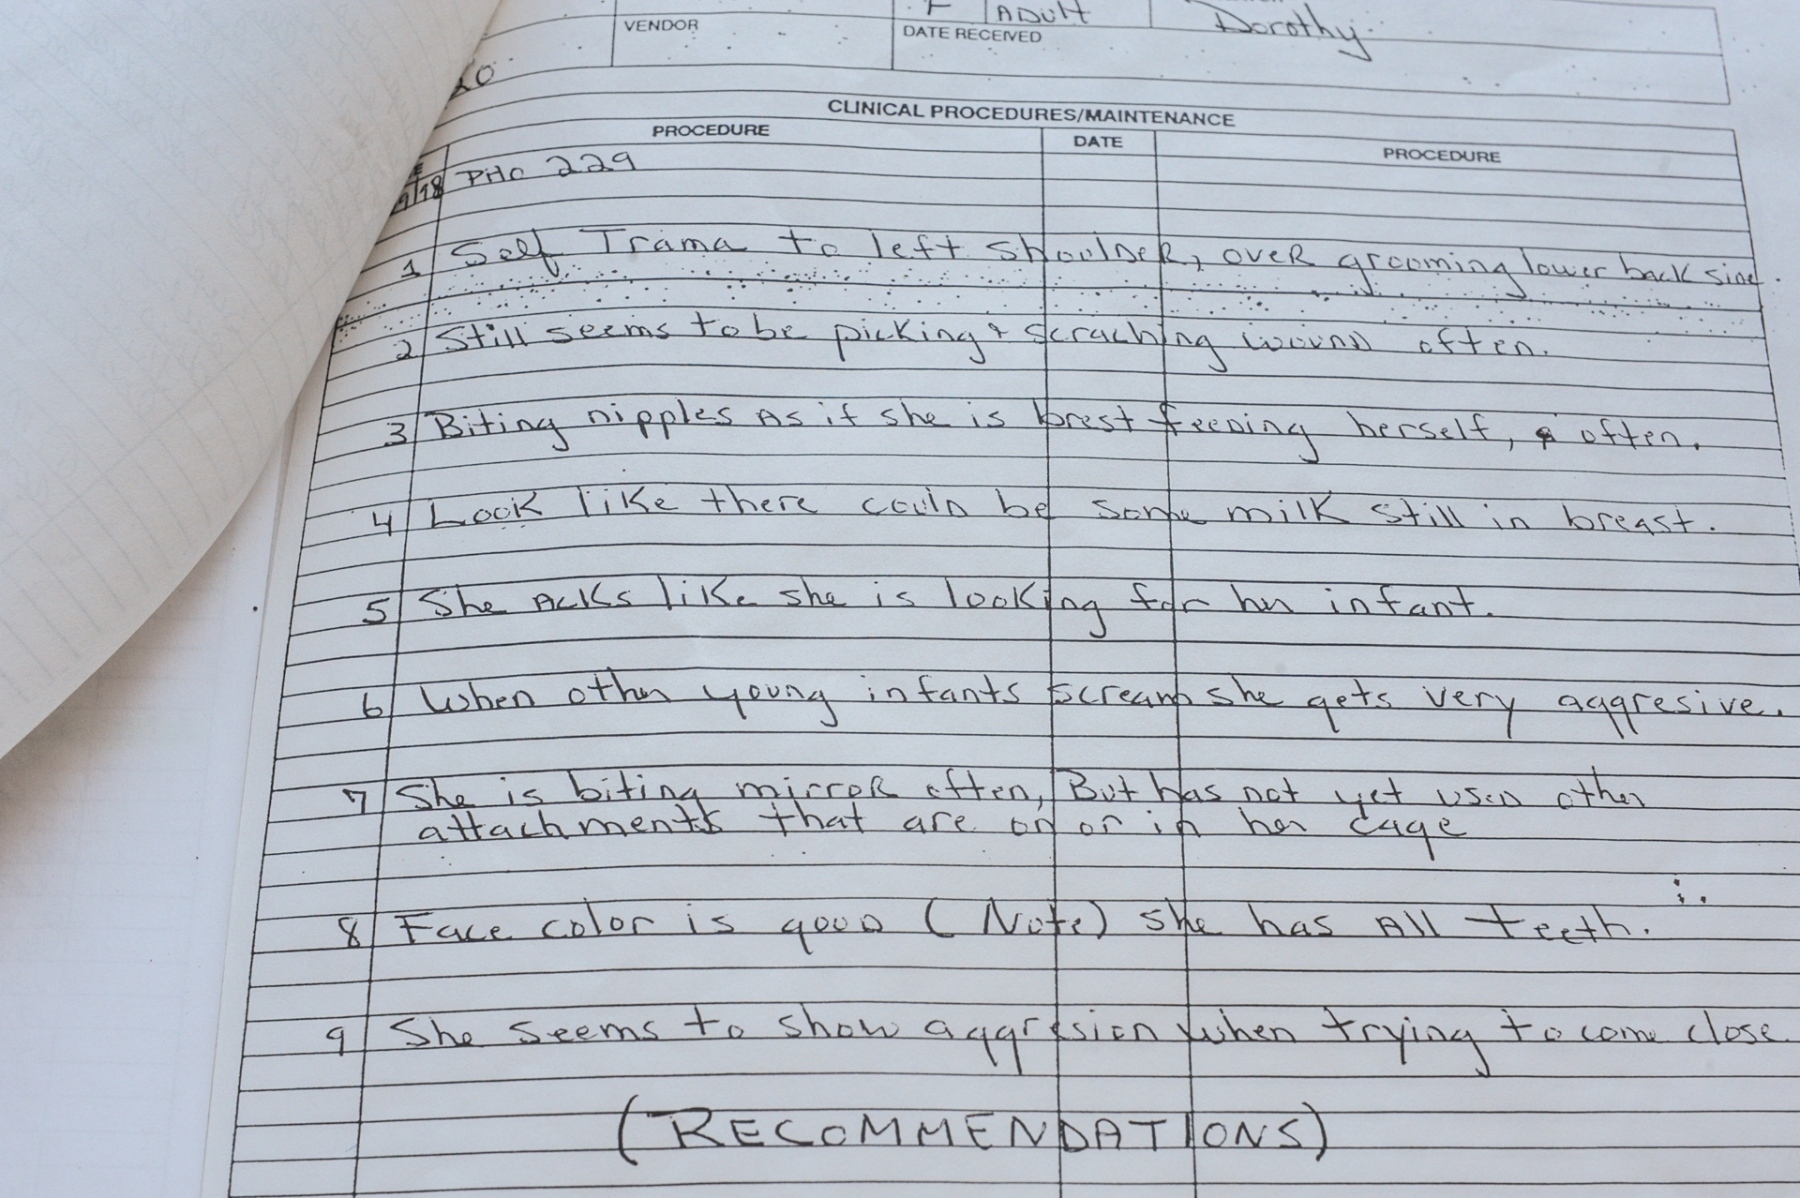 F ADULT Dorothy
VENDOR DATE RECEIVED
CLINICAL PROCEDURES/MAINTENANCE
PROCEDURE DATE PROCEDURE
PHO 229
1 Self Trama to left shoulder, over grooming lower back side.
2 Still seems to be picking & scraching wound often.
3 Biting nipples as if she is brest feeding herself, often.
4 Look like there could be some milk still in breast.
5 She acks like she is looking for her infant.
6 When other young infants scream she gets very aggresive.
7 She is biting mirror often, But has not yet used other
attachments that are on or in her cage
8 Face color is good (Note) she has All teeth.
9 She seems to show aggresion when trying to come close
(RECOMMENDATIONS)